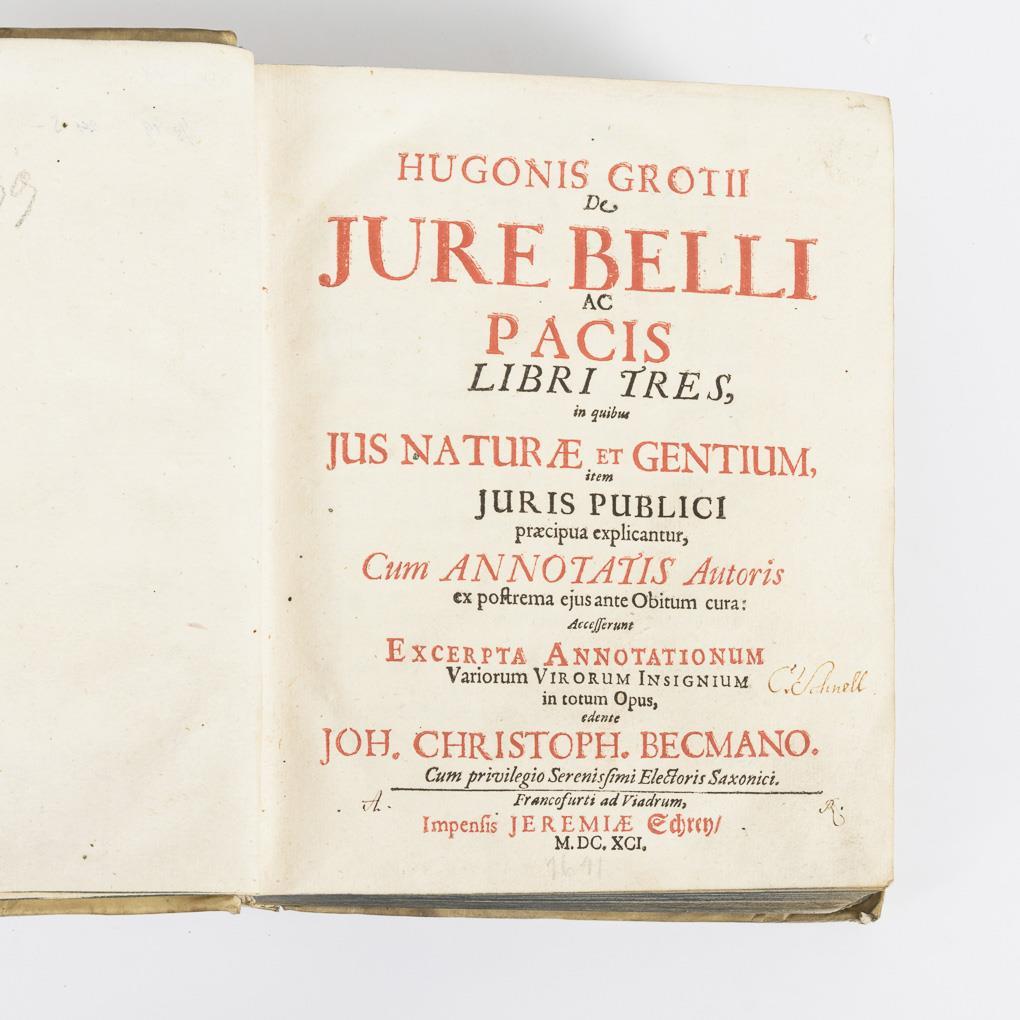 HUGONIS GROTII
De
JURE BELLI
AC
PACIS
LIBRI TRES,
in quibus
JUS NATURÆ ET GENTIUM,
item
JURIS PUBLICI
præcipua explicantur,
Cum ANNOTATIS Autoris
ex postrema ejus ante Obitum cura:
Accesserunt
EXCERPTA ANNOTATIONUM
Variorum VIRORUM INSIGNIUM
Schnell
in totum Opus,
edente
JOH. CHRISTOPH. BECMANO.
Cum privilegio Serenissimi Electoris Saxonici.
Francofurti ad Viadrum,
A. R.
Impensis JEREMIÆ Schrey/
M. DC. XCI.